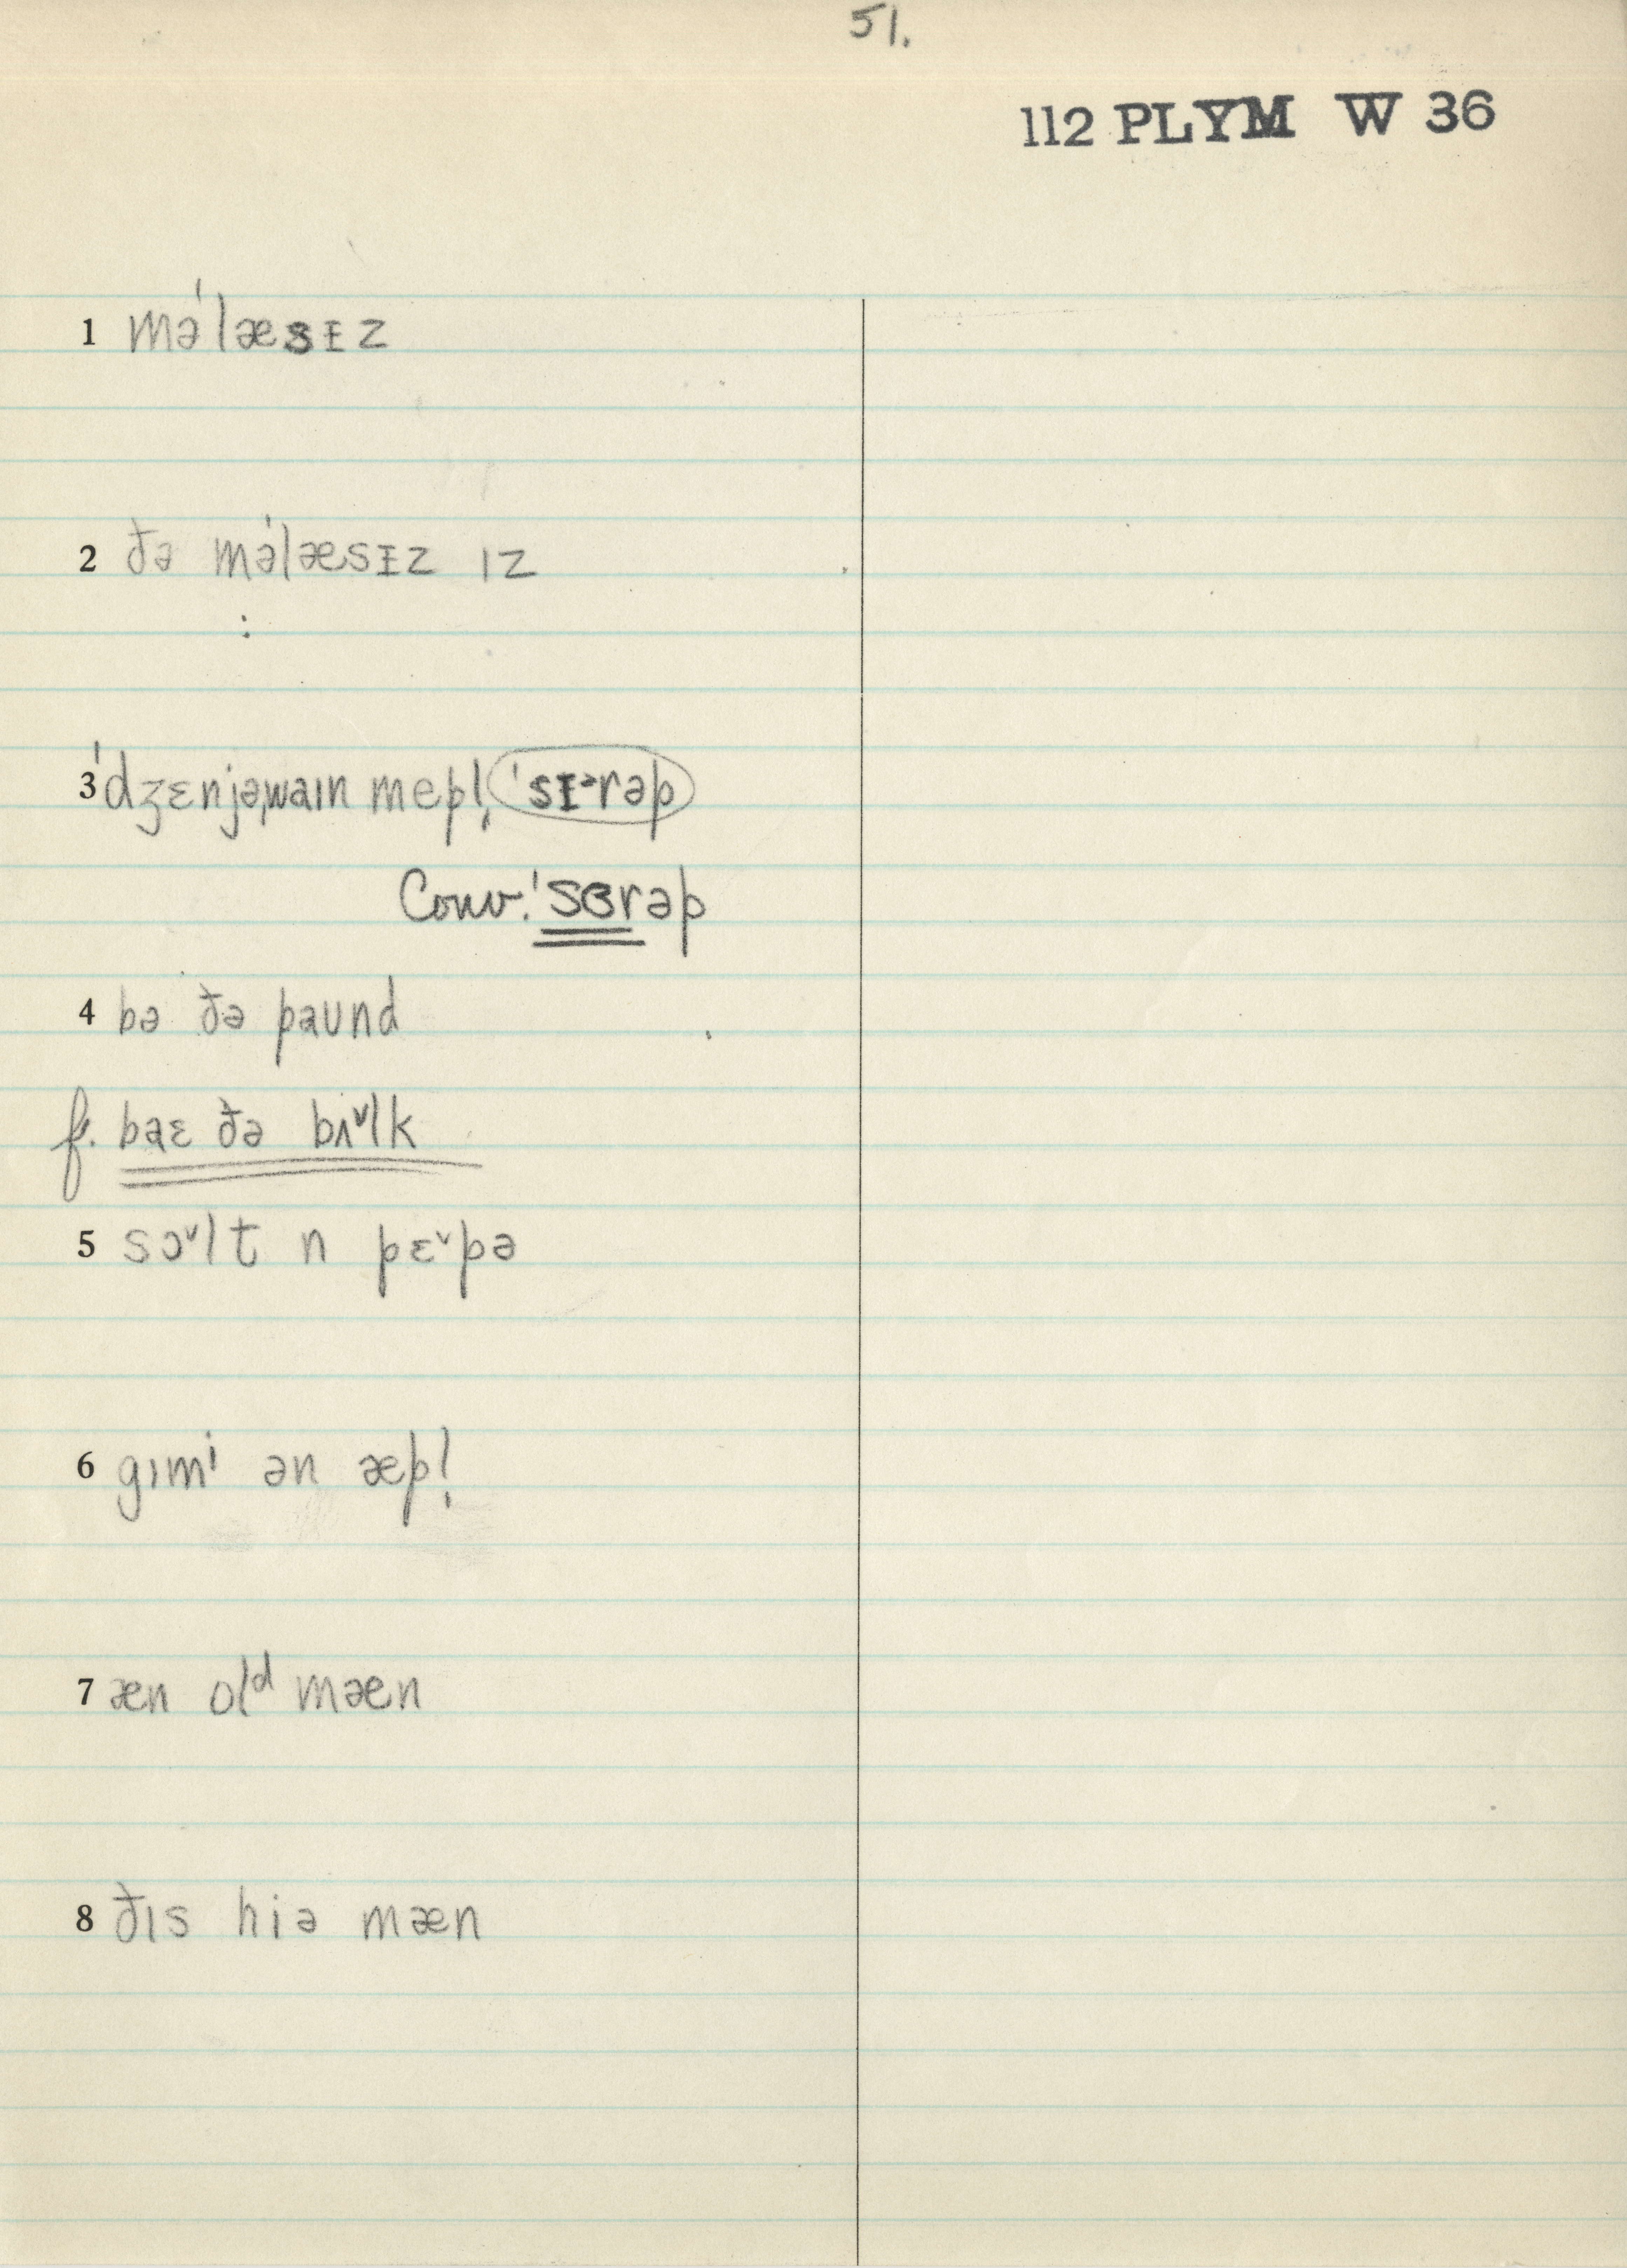 51.
112 PLYM W 36
1 məˈlæsɪz
2 ðə məˈlæsɪz ız
3 ˈdʒɛnjəˌwaın mepl̩ ˈsɪᵊrəp
Conv. ˈsɞrəp
4 bə ðə paund
f. baɛ ðə bʌ˅lk
5 sɔ˅lt n pɛ˅pə
6 gımⁱ ən æpl̩
7 æn olᵈ mæn
8 ðıs hiə mæn